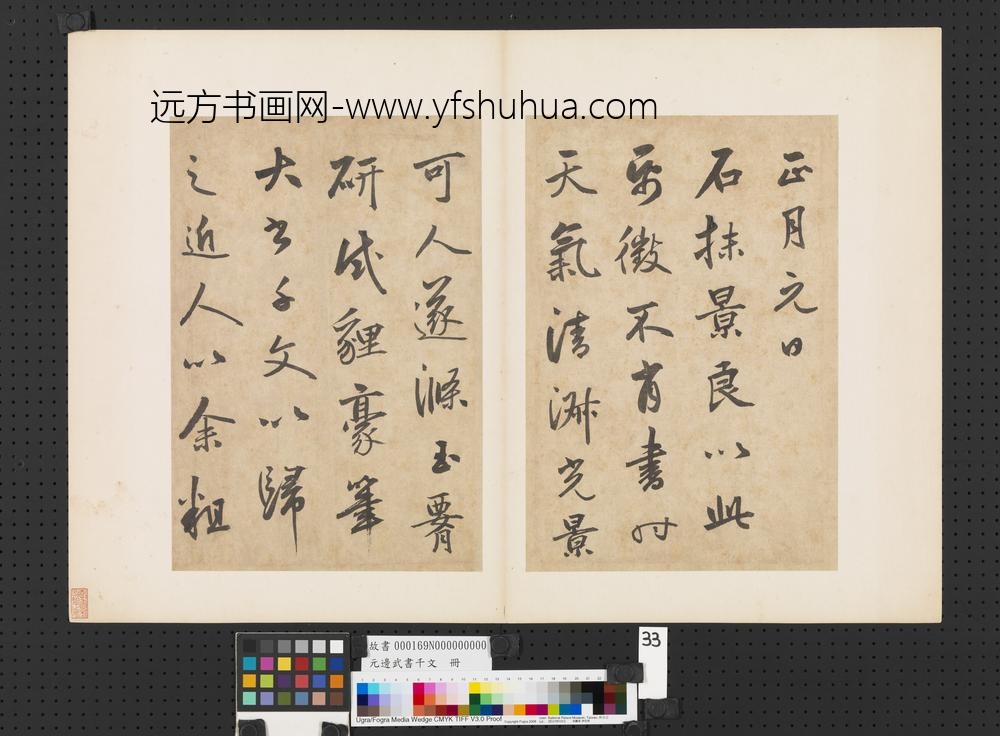 远方书画网-www.yfshuhua.com
正月元日
石抹景良以此
帋徵不肖書時
天氣清淑光景
可人遂滌玉
研試貍豪筆
大書千文以歸
之近人以余粗
33
故書 000169N000000000
元邊武書千文 冊
Ugra/Fogra Media Wedge CMYK TIFF V3.0 Proof